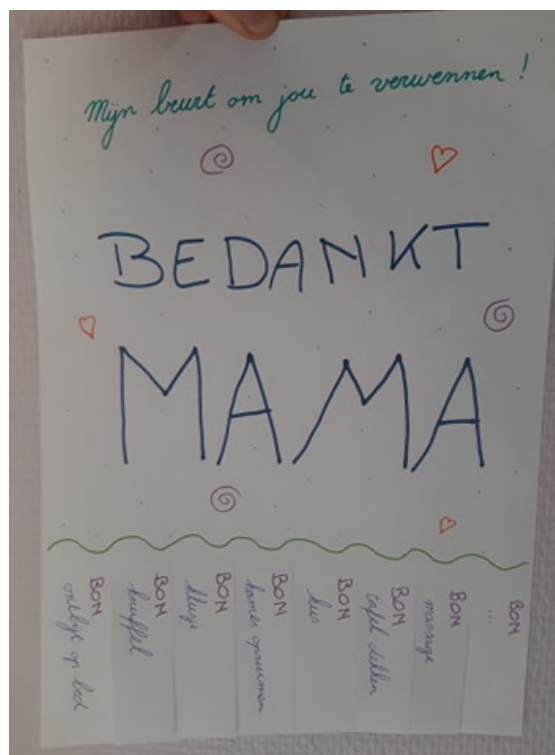 Mijn beurt om jou te verwennen !
BEDANKT
MAMA
BOM
ontbijt op bed
BOM
knuffel
BOM
klusje
BOM
kamer opruimen
BOM
kus
BOM
tafel dekken
BOM
massage
BOM
...